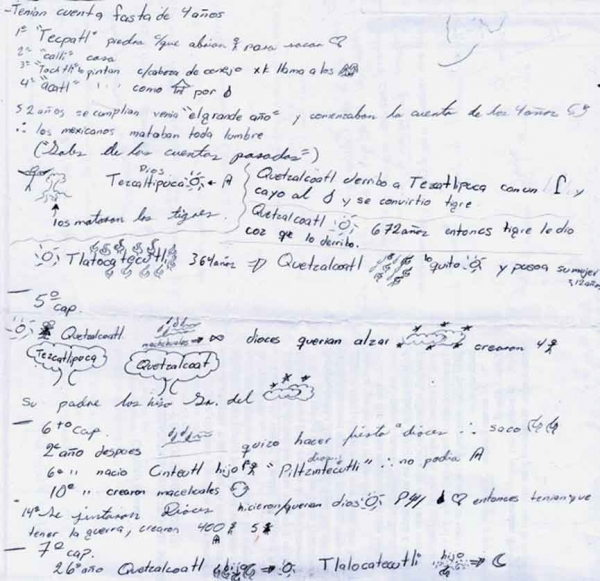 -Tenian cuenta fasta de 4 años
1º "Tecpatl" piedra q/que abrian para sacar
2º "calli" casa
3º "Tochtli" lo pintan c/cabeza de conejo xk llama a los
4º "acatl" '' '' como por
52 años se cumplian venia "el grande año" y comenzaban la cuenta de los 4 años
∴ los mexicanos mataban toda lumbre
(de los cuentos pasados")
Dios
Tezcatlipuca ←
los mataron los tigres.
Quetzalcoatl derribo a Tezcatlipoca con un y
cayo al y se convirtio tigre
Quetzalcoatl 672 años entonces tigre le dio
coz que lo derribo.
364 años ⇒ Quetzalcoatl lo quito y puso a su mujer
312 años
— 5º
cap.
Quetzalcoatl macehuales → dioces querian alzar crearon 4
Tezcatlipoca
Quetzalcoatl
Su padre los hizo Sr. del
— 6to cap.
2º año despues quizo hacer fiesta a dioces ∴ saco
6º '' nacio Cinteotl hijo "Piltzintecutli" ∴ no podia
10º '' crearon macehuales
14º Se juntaron Dioces hicieron/querian dios entonces tenian que
tener la guerra, crearon 400 5
— 7º
cap.
26º año Quetzalcoatl hijo ⇒ Tlalocatecutli hijo ⇒